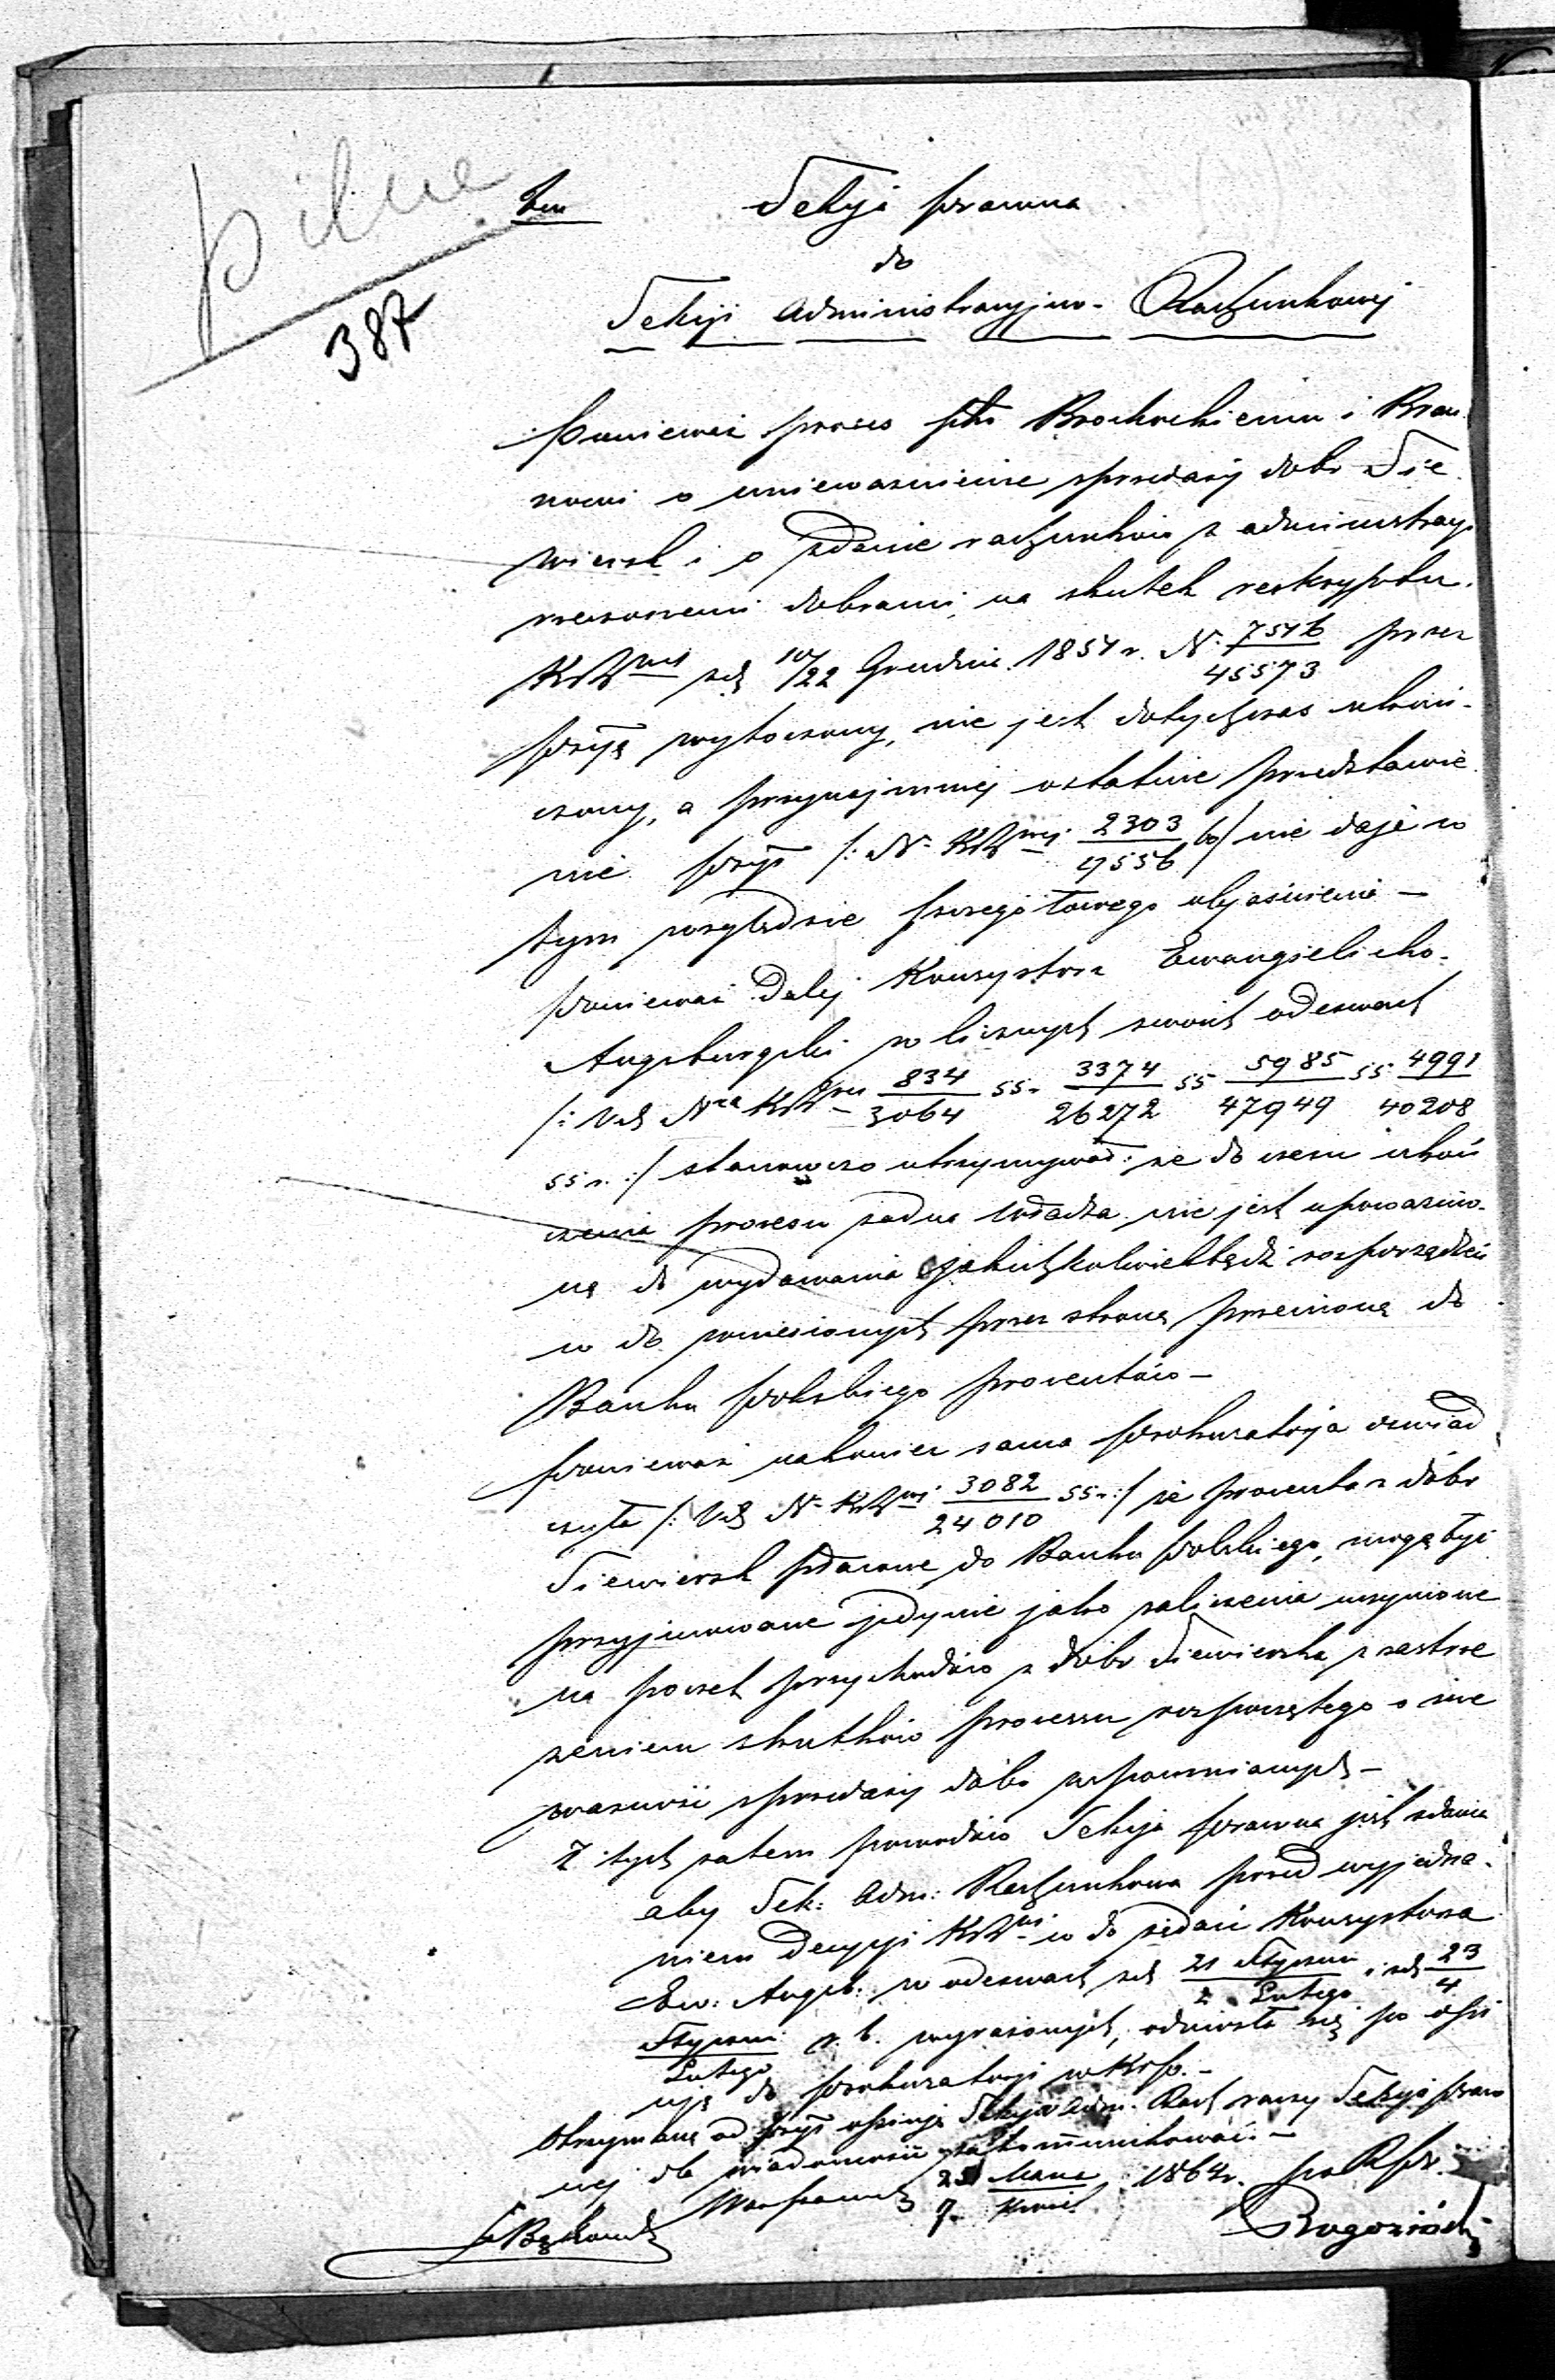 pilne
387
Sekcja Prawna
do
Sekcji Administracyjno-Rachunkowej
Ponieważ proces pko Brochockiemu i Brau
nowi o unieważnienie sprzedaży dóbr Sie
wiersk i o zdanie rachunków z administracyi
rzeczonemi dobrami, na skutek reskryptu
KR z d. 10/22 Grudnia 1854 r. N. 7546/45573 przez
Prryą wytoczony, nie jest dotychczas ukoń-
czony, a przynajmniej ostatnie przedstawie
nie Prryi /: N. KR 2303/19556 / nie daje w
tym względzie szczegółowego objaśnienia —
ponieważ dalej Konsystorz Ewangielicko-
Augsburgski w licznych swoich odezwach
/: Vid Nra KR 834/3064 55 r. 3374/26272 55 5985/47949 55 4991/40208
55 r. :/ stanowczo utrzymywał: że do czasu ukoń
czenia procesu żadna władza nie jest upoważnio-
ną do wydawania jakichkolwiekbądź rozporządzeń
co do wniesionych przez stronę przeciwną do
Banku Polskiego procentów —
ponieważ nakoniec sama Prokuratorja oświad
czyła /: Vid N. KR 3082/24010 55 r. :/ że procenta z dóbr
Siewiersk płacone do Banku Polskiego, mogą być
przyjmowane jedynie jako zaliczenia uczynione
na poczet przychodów z dóbr Siewierska z zastrze
żeniem skutków processu rozpoczętego o nie
ważność sprzedaży dóbr wspomnianych —
Z tych zatem powodów Sekcja Prawna jest zdania
aby Sek: Adm: Rachunkowa przed wyjedna-
niem Decyzji KR co do żądań Konsystorza
Ew: Augsb: w odezwach z d. 21 Stycznia/2 Lutego i z d. 23/4
Stycznia/Lutego r. b. wyrażonych, odniosła się po opi
nję do Prokuratorji w Krp. —
Otrzymaną od Prryi opinję Sekcja Adm. Rach raczy Sekcji Praw
nej do wiadomości zakommunikować —
Warszawa d. 26 Marca/7 Kwiet. 1864 r.
Rogoziński